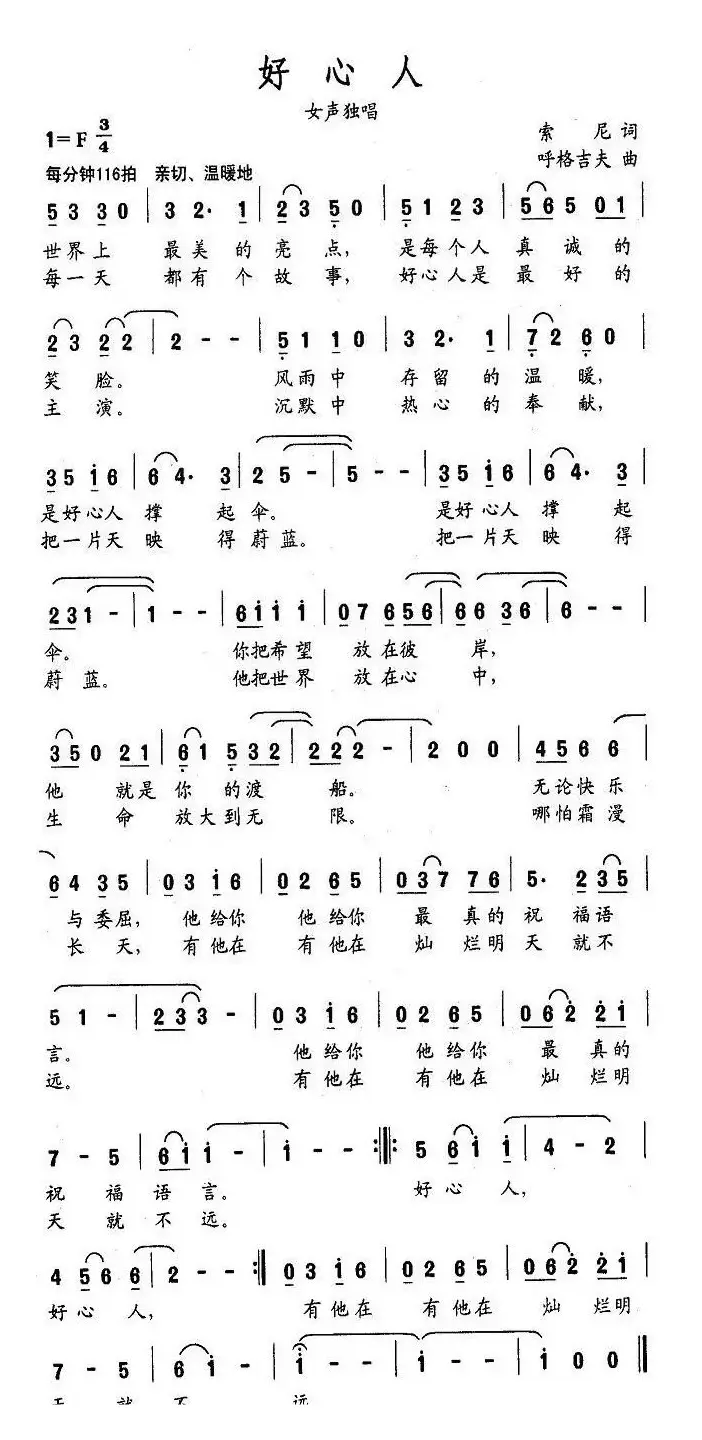 好心人
女声独唱
1=F 3/4
索尼 词
每分钟116拍 亲切、温暖地
呼格吉夫 曲
5 3 3 0 | 3 2· 1 | 2 3 5 0 | 5 1 2 3 | 5 6 5 0 1 |
世界上 最美的亮点, 是每个人真诚的
每一天 都有个故事, 好心人是最好的
2 3 2 2 | 2 - - | 5 1 1 0 | 3 2· 1 | 7 2 6 0 |
笑脸。 风雨中 存留的温暖,
主演。 沉默中 热心的奉献,
3 5 i 6 | 6 4· 3 | 2 5 - | 5 - - | 3 5 i 6 | 6 4· 3 |
是好心人撑起伞。 是好心人撑起
把一片天映得蔚蓝。 把一片天映得
2 3 1 - | 1 - - | 6 i i i | 0 7 6 5 6 | 6 6 3 6 | 6 - - |
伞。 你把希望 放在彼岸,
蔚蓝。 他把世界 放在心中,
3 5 0 2 1 | 6 1 5 3 2 | 2 2 2 - | 2 0 0 | 4 5 6 6 |
他 就是你的渡船。 无论快乐
生命 放大到无限。 哪怕霜漫
6 4 3 5 | 0 3 i 6 | 0 2 6 5 | 0 3 7 7 6 | 5· 2 3 5 |
与委屈, 他给你 他给你 最真的祝福语
长天, 有他在 有他在 灿烂明天就不
5 1 - | 2 3 3 - | 0 3 i 6 | 0 2 6 5 | 0 6 2 2 i |
言。 他给你 他给你 最真的
远。 有他在 有他在 灿烂明
7 - 5 | 6 i i - | i - - :||: 5 6 i i | i 4 - 2 |
祝福语言。 好心人,
天就不远。
4 5 6 6 | 2 - - :|| 0 3 i 6 | 0 2 6 5 | 0 6 2 2 i |
好心人, 有他在 有他在 灿烂明
7 - 5 | 6 i - | i - - | i - - | i 0 0 ||
天就不远